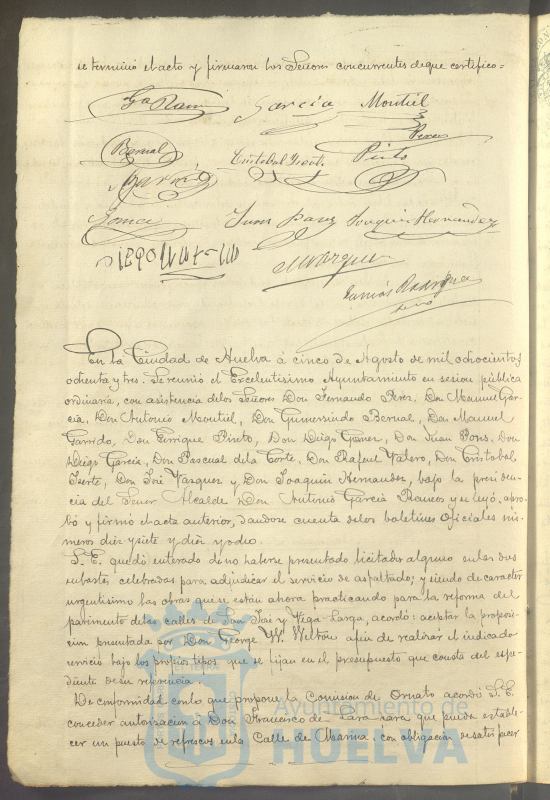 se terminó el acto y firmaron los Señores concurrentes de que certifico=
Ga Ram García Montiel
Perez
Bernal Cristobal Iserte Pinto
Garrido
Gomez Juan Joaquin Hernandez
Diego
M Vazquez
Tomás Rodriguez
En la Ciudad de Huelva á cinco de Agosto de mil ochocientos
ochenta y tres. Se reunió el Excelentísimo Ayuntamiento en sesion pública
ordinaria, con asistencia de los Señores Don Fernando Perez, Don Manuel Gar-
cía, Don Antonio Montiel, Don Gumersindo Bernal, Don Manuel
Garrido, Don Enrique Pinto, Don Diego Gomez, Don Juan Pons, Don
Diego García, Don Pascual de la Corte, Don Rafael Valero, Don Cristobal
Iserte, Don José Vazquez y Don Joaquin Hernandez, bajo la presiden-
cia del Señor Alcalde Don Antonio García Ramos y se leyó, apro-
bó y firmó el acta anterior, dandose cuenta de los boletines oficiales nú-
meros diez y siete y diez y ocho.
S. E. quedó enterado de no haberse presentado licitador alguno en las dos
subastas celebradas para adjudicar el servicio de asfaltado; y siendo de caracter
urgentísimo las obras que se están ahora practicando para la reforma del
pavimento de las calles de San José y Vega-larga, acordó: aceptar la proposi-
cion presentada por Don George W. Welton afin de realizar el indicado
servicio bajo los propios tipos que se fijan en el presupuesto que consta del espe-
diente de su referencia.
De conformidad con lo que propone la Comision de Ornato acordó S. E.
conceder autorizacion á Don Francisco de Lara para que pueda estable-
cer un puesto de refrescos en la Calle de Marina, con obligacion de satisfacer
Ayuntamiento de
HUELVA